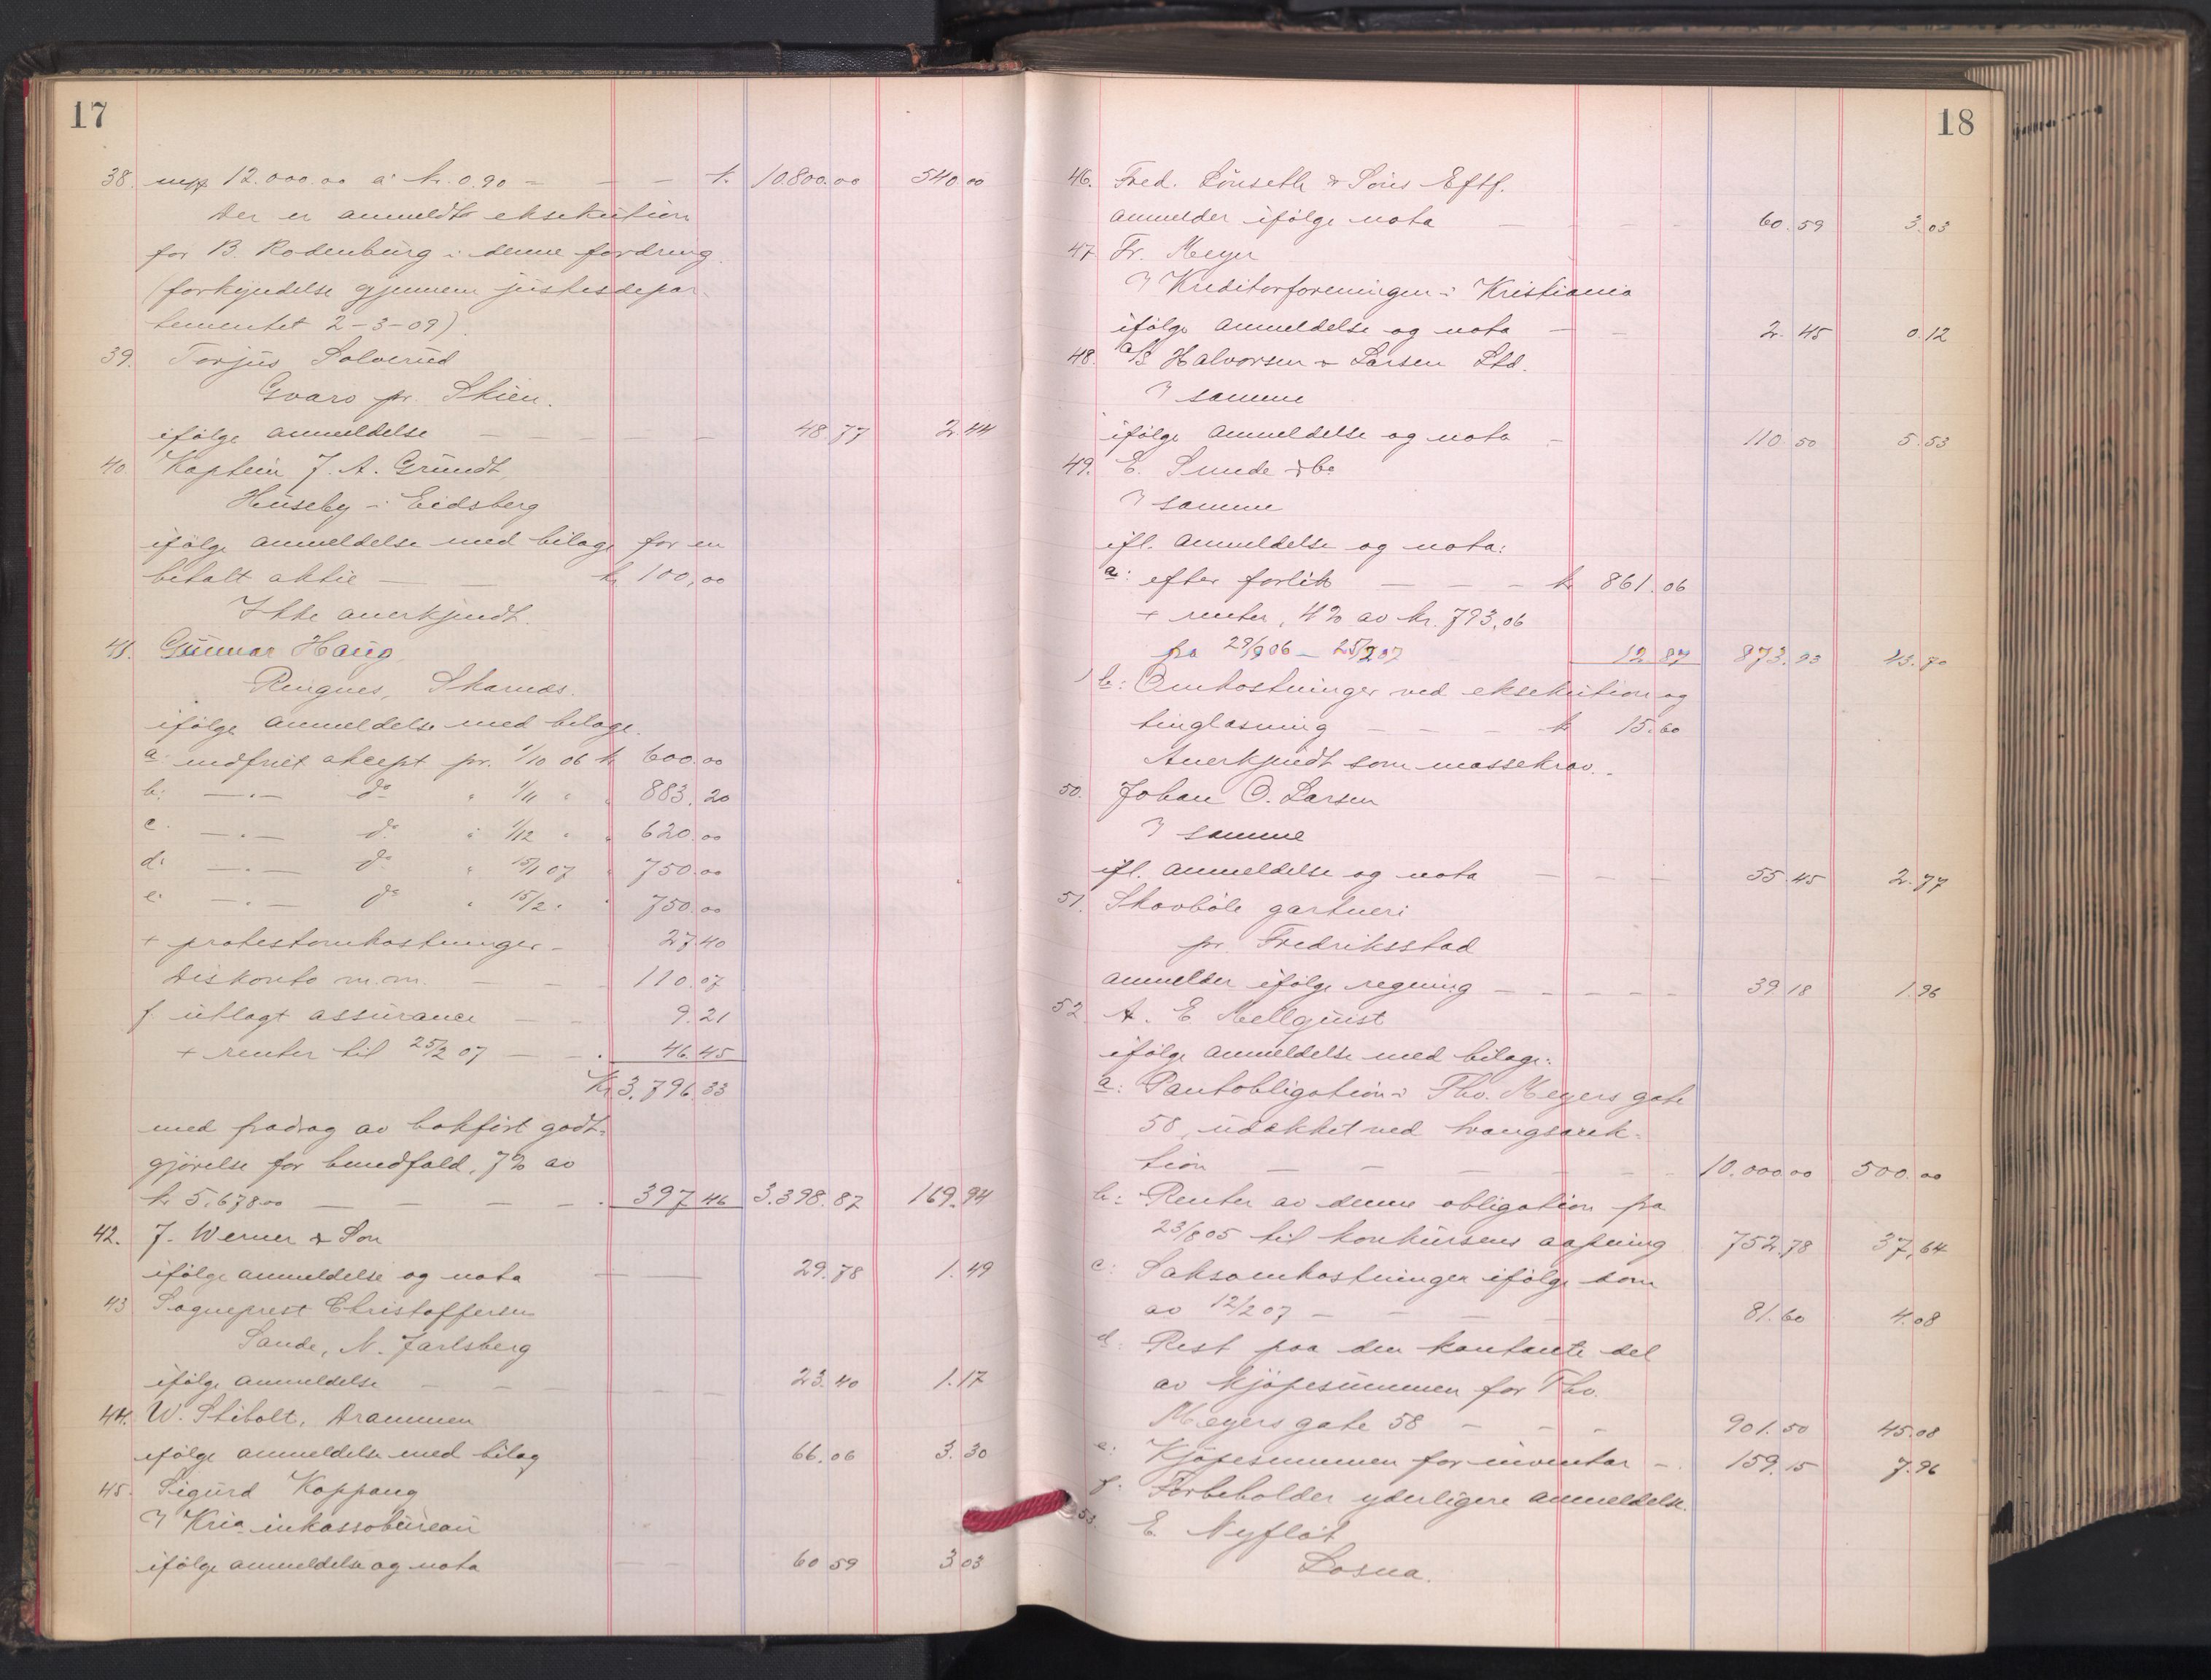 17
38. 12.000.00 à kr. 0.90 - — — k. 10.800.00 540.00
Der er anmeldt eksekution
for B. Rodenburg i denne fordring.
(forkyndelse gjennem justisdepar-
tementet 2-3-09).
39. Torjus Solverud
Gvarv pr. Skien.
ifølge anmeldelse — — — — — 48.77 2.44
40. Kaptein J. A. Grundt,
Huseby i Eidsberg
ifølge anmeldelse med bilage for en
betalt aktie — — kr 100,00
Ikke anerkjendt.
41. Gunnar Haug
Ringnes, Skarnæs.
ifølge anmeldelse med bilage.
a: indfriet aksept pr. 1/10 06 kr 600.00
b: —"— do " 1/11 " " 883.20
c: —"— do " 1/12 " " 620.00
d: —"— do " 15/1 07 " 750.00
e: —"— do " 15/2 " " 750.00
+ protestomkostninger - 27.40
Diskonto m.m. — — 110.07
f. utlagt assurance — — 9.21
+ renter til 25/2 07 — - . 46.45
Kr 3.796.33
med fradrag av bokført godt-
gjørelse for bundfald, 7% av
kr 5.678.00 — — — — . 397.46 3.398.87 169.94
42. J. Werner & Søn
ifølge anmeldelse og nota — — 29.78 1.49
43 Sogneprest Christoffersen
Sande, N. Jarlsberg
ifølge anmeldelse — — — — 23.40 1.17
44. W. Stibolt, Drammen
ifølge anmeldelse med bilag 66.06 3.30
45. Sigurd Koppang
v/ Kria inkassobureau
ifølge anmeldelse og nota — — 60.59 3.03
18
46. Fred. Lönseth & Söns Eftf.
anmelder ifølge nota — — — - 60.59 3.03
47. Fr. Meyer
v/ Kreditorforeningen i Kristiania
ifølge anmeldelse og nota — — 2.45 0.12
48. A/S Halvorsen & Larsen Ltd.
v/ samme
ifølge anmeldelse og nota - 110.50 5.53
49. E. Sunde & Co
v/ samme
ifl. anmeldelse og nota:
a: efter forlik — — — kr 861.06
+ renter, 4% av kr. 793,06
fra 29/9 06 — 25/2 07 12.87 873.93 43.70
b: Omkostninger ved eksekution og
tinglæsning — — — kr 15.60
Anerkjendt som massekrav.
50. Johan O. Larsen
v/ samme
ifl. anmeldelse og nota — — — 55.45 2.77
51. Skovbøle gartneri
pr. Fredriksstad
anmelder ifølge regning — — — — — 39.18 1.96
52. A. E. Mellquist
ifølge anmeldelse med bilage:
a: Pantobligation i Thv. Meyers gate
58, udækket ved tvangsauk-
tion — — — — — 10.000.00 500.00
b: Renter av denne obligation fra
23/8 05 til konkursens aapning 752.78 37,64
c: Saksomkostninger ifølge dom
av 12/2 07 — — — — 81.60 4.08
d: Rest paa den kontante del
av kjøpesummen for Thv.
Meyers gate 58 — — - 901.50 45.08
e: Kjøpesummen for inventar - . 159.15 7.96
f. Forbeholder yderligere anmeldelse.
53. E. Nyflöt
Losna.